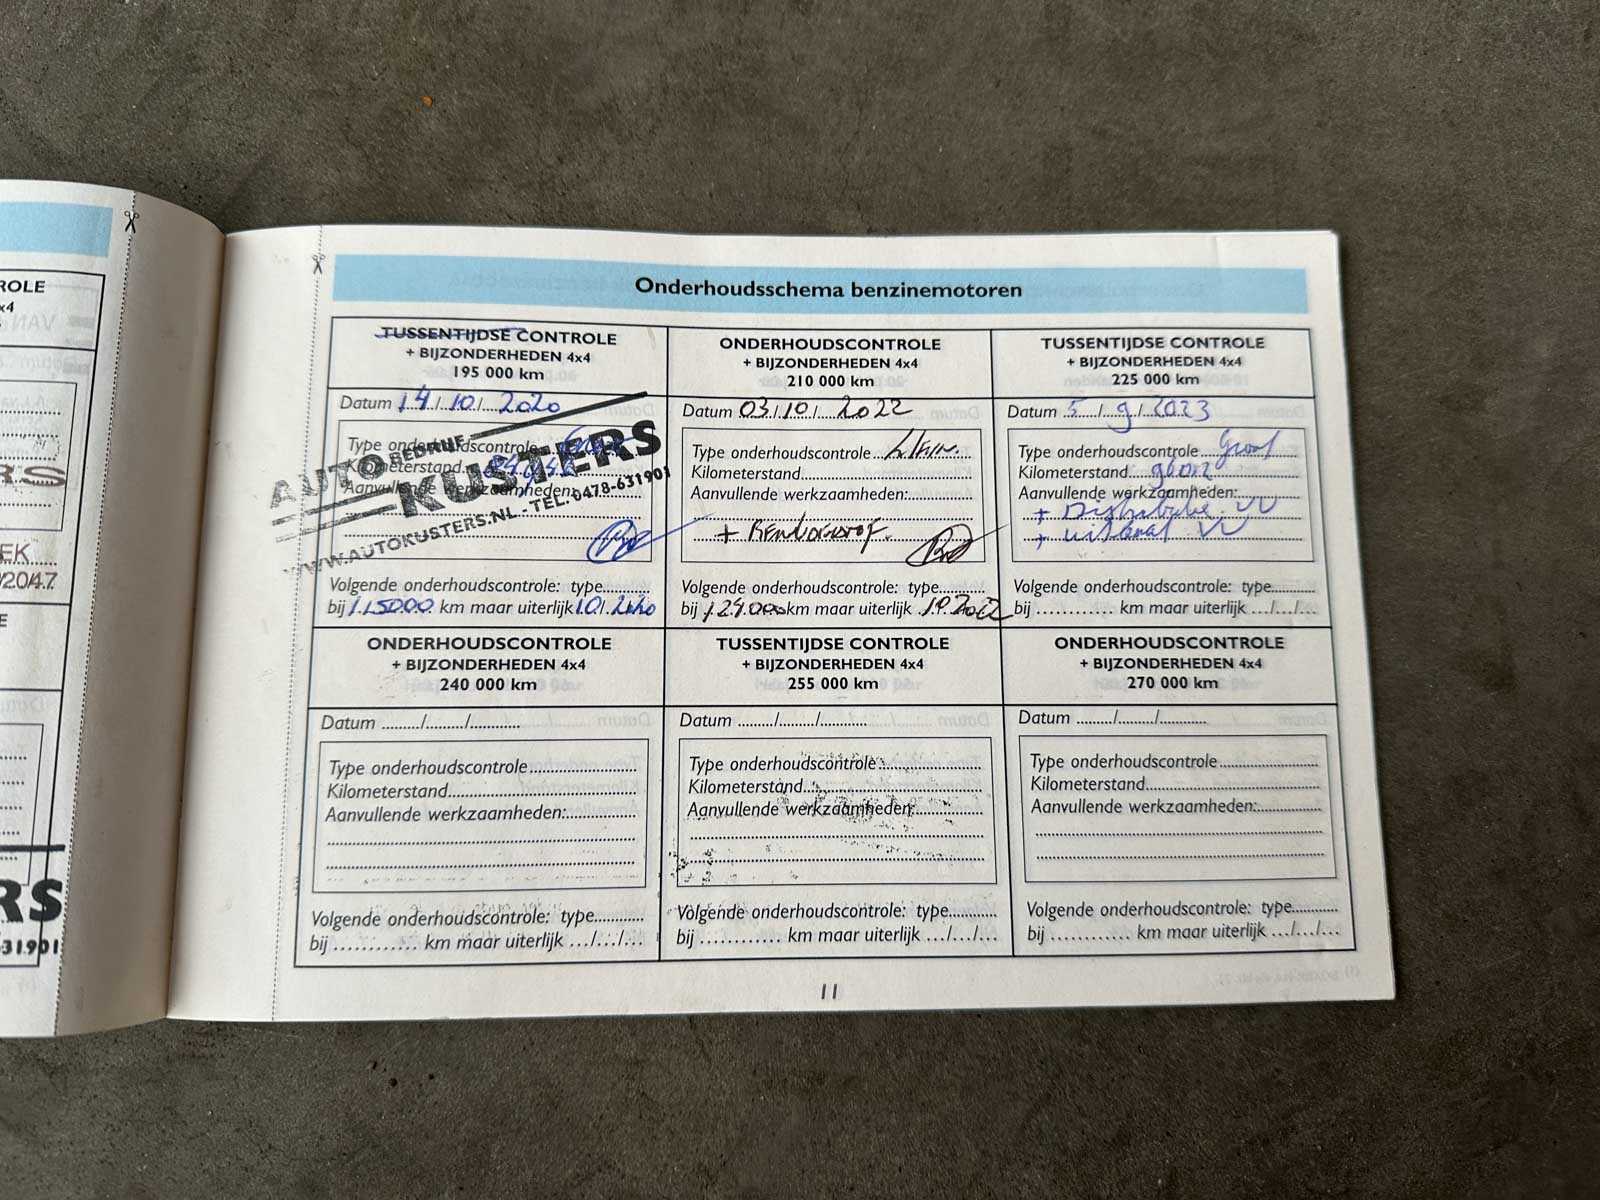 ROLE
x4
RS
EK
/20/47
E
RS
-631901
Onderhoudsschema benzinemotoren
TUSSENTIJDSE CONTROLE
+ BIJZONDERHEDEN 4x4
195 000 km
Datum 14/10/2020
Type onderhoudscontrole
Kilometerstand
Aanvullende werkzaamheden:
AUTOBEDRIJF
KUSTERS
WWW.AUTOKUSTERS.NL - TEL. 0478-631901
Volgende onderhoudscontrole: type
bij 115000 km maar uiterlijk 10/2020
ONDERHOUDSCONTROLE
+ BIJZONDERHEDEN 4x4
210 000 km
Datum 03/10/2022
Type onderhoudscontrole Klein
Kilometerstand
Aanvullende werkzaamheden:
+ Remvloeistof
Volgende onderhoudscontrole: type
bij 124.000 km maar uiterlijk 10.2022
TUSSENTIJDSE CONTROLE
+ BIJZONDERHEDEN 4x4
225 000 km
Datum 5/9/2023
Type onderhoudscontrole Groot
Kilometerstand 96012
Aanvullende werkzaamheden:
+ Distributie VV
+
Volgende onderhoudscontrole: type
bij ............ km maar uiterlijk .../.../...
ONDERHOUDSCONTROLE
+ BIJZONDERHEDEN 4x4
240 000 km
Datum ........./......../............
Type onderhoudscontrole
Kilometerstand
Aanvullende werkzaamheden:
Volgende onderhoudscontrole: type
bij ............ km maar uiterlijk .../.../...
TUSSENTIJDSE CONTROLE
+ BIJZONDERHEDEN 4x4
255 000 km
Datum ........./......../............
Type onderhoudscontrole
Kilometerstand
Aanvullende werkzaamheden:
Volgende onderhoudscontrole: type
bij ............ km maar uiterlijk .../.../...
ONDERHOUDSCONTROLE
+ BIJZONDERHEDEN 4x4
270 000 km
Datum ........./......../............
Type onderhoudscontrole
Kilometerstand
Aanvullende werkzaamheden:
Volgende onderhoudscontrole: type
bij ............ km maar uiterlijk .../.../...
11